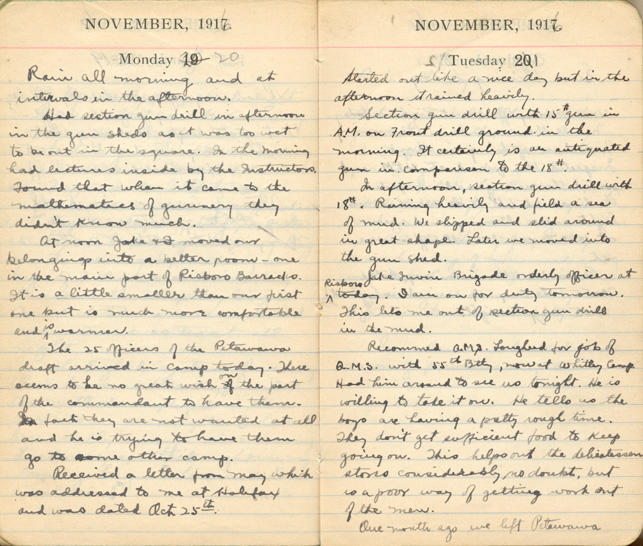 NOVEMBER, 1916
Monday 20
Rain all morning and at
intervals in the afternoon.
Had section gun drill in afternoon
in the gun sheds as it was too wet
to be out in the square. In the morning
had lectures inside by the Instructors.
Found that when it came to the
mathematics of gunnery they
didn't know much.
At noon Jake & I moved our
belongings into a better room - one
in the main part of Risboro Barracks.
It is a little smaller than our first
one but is much more comfortable
and is warmer.
The 25 officers of the Petawawa
draft arrived in camp today. There
seems to be no great wish on the part
of the commandant to have them.
In fact they are not wanted at all
and he is trying to have them
go to some other camp.
Received a letter from May which
was addressed to me at Halifax
and was dated Oct 25th.
NOVEMBER, 1916
Tuesday 21
Started out like a nice day but in the
afternoon it rained heavily.
Section gun drill with 15th gun in
A.M. on Front drill ground in the
morning. It certainly is an antiquated
gun in comparison to the 18th.
In afternoon, section gun drill with
18th. Raining heavily and field a sea
of mud. We slipped and slid around
in great shape. Later we moved into
the gun shed.
Jake Irwin Brigade orderly officer at
Risboro today. I am on for duty tomorrow.
This lets me out of section gun drill
in the mud.
Recommed Q.M.S. Lougheed for job of
Q.M.S. with 55th Bty, now at Whitley Camp
Had him around to see us tonight. He is
willing to take it on. He tells us the
boys are having a petty rough time.
They don't get sufficient food to keep
going on. This helps out the delicatessen
stores considerably, no doubt, but
is a poor way of getting work out
of the men.
One month ago we left Petawawa